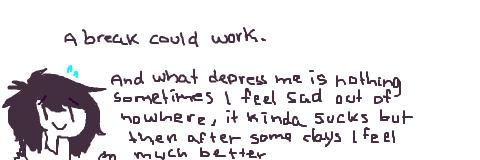 A break could work.
And what depress me is nothing
sometimes I feel sad out of
nowhere, it kinda sucks but
then after some days I feel
much better